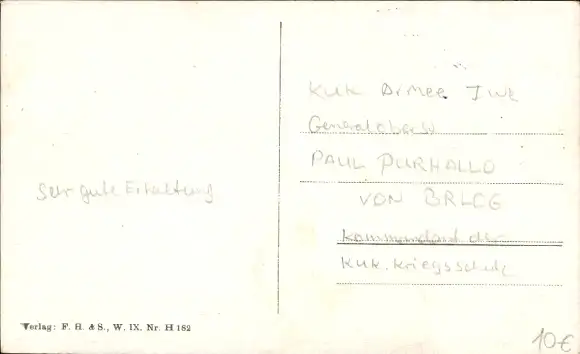 Sehr gute Erhaltung
KuK Armee
Generaloberst
PAUL PUHALLO
VON BRLOG
Kommandant der
KuK. Kriegsschule
Verlag: F. H. & S., W. IX. Nr. H 182
10€